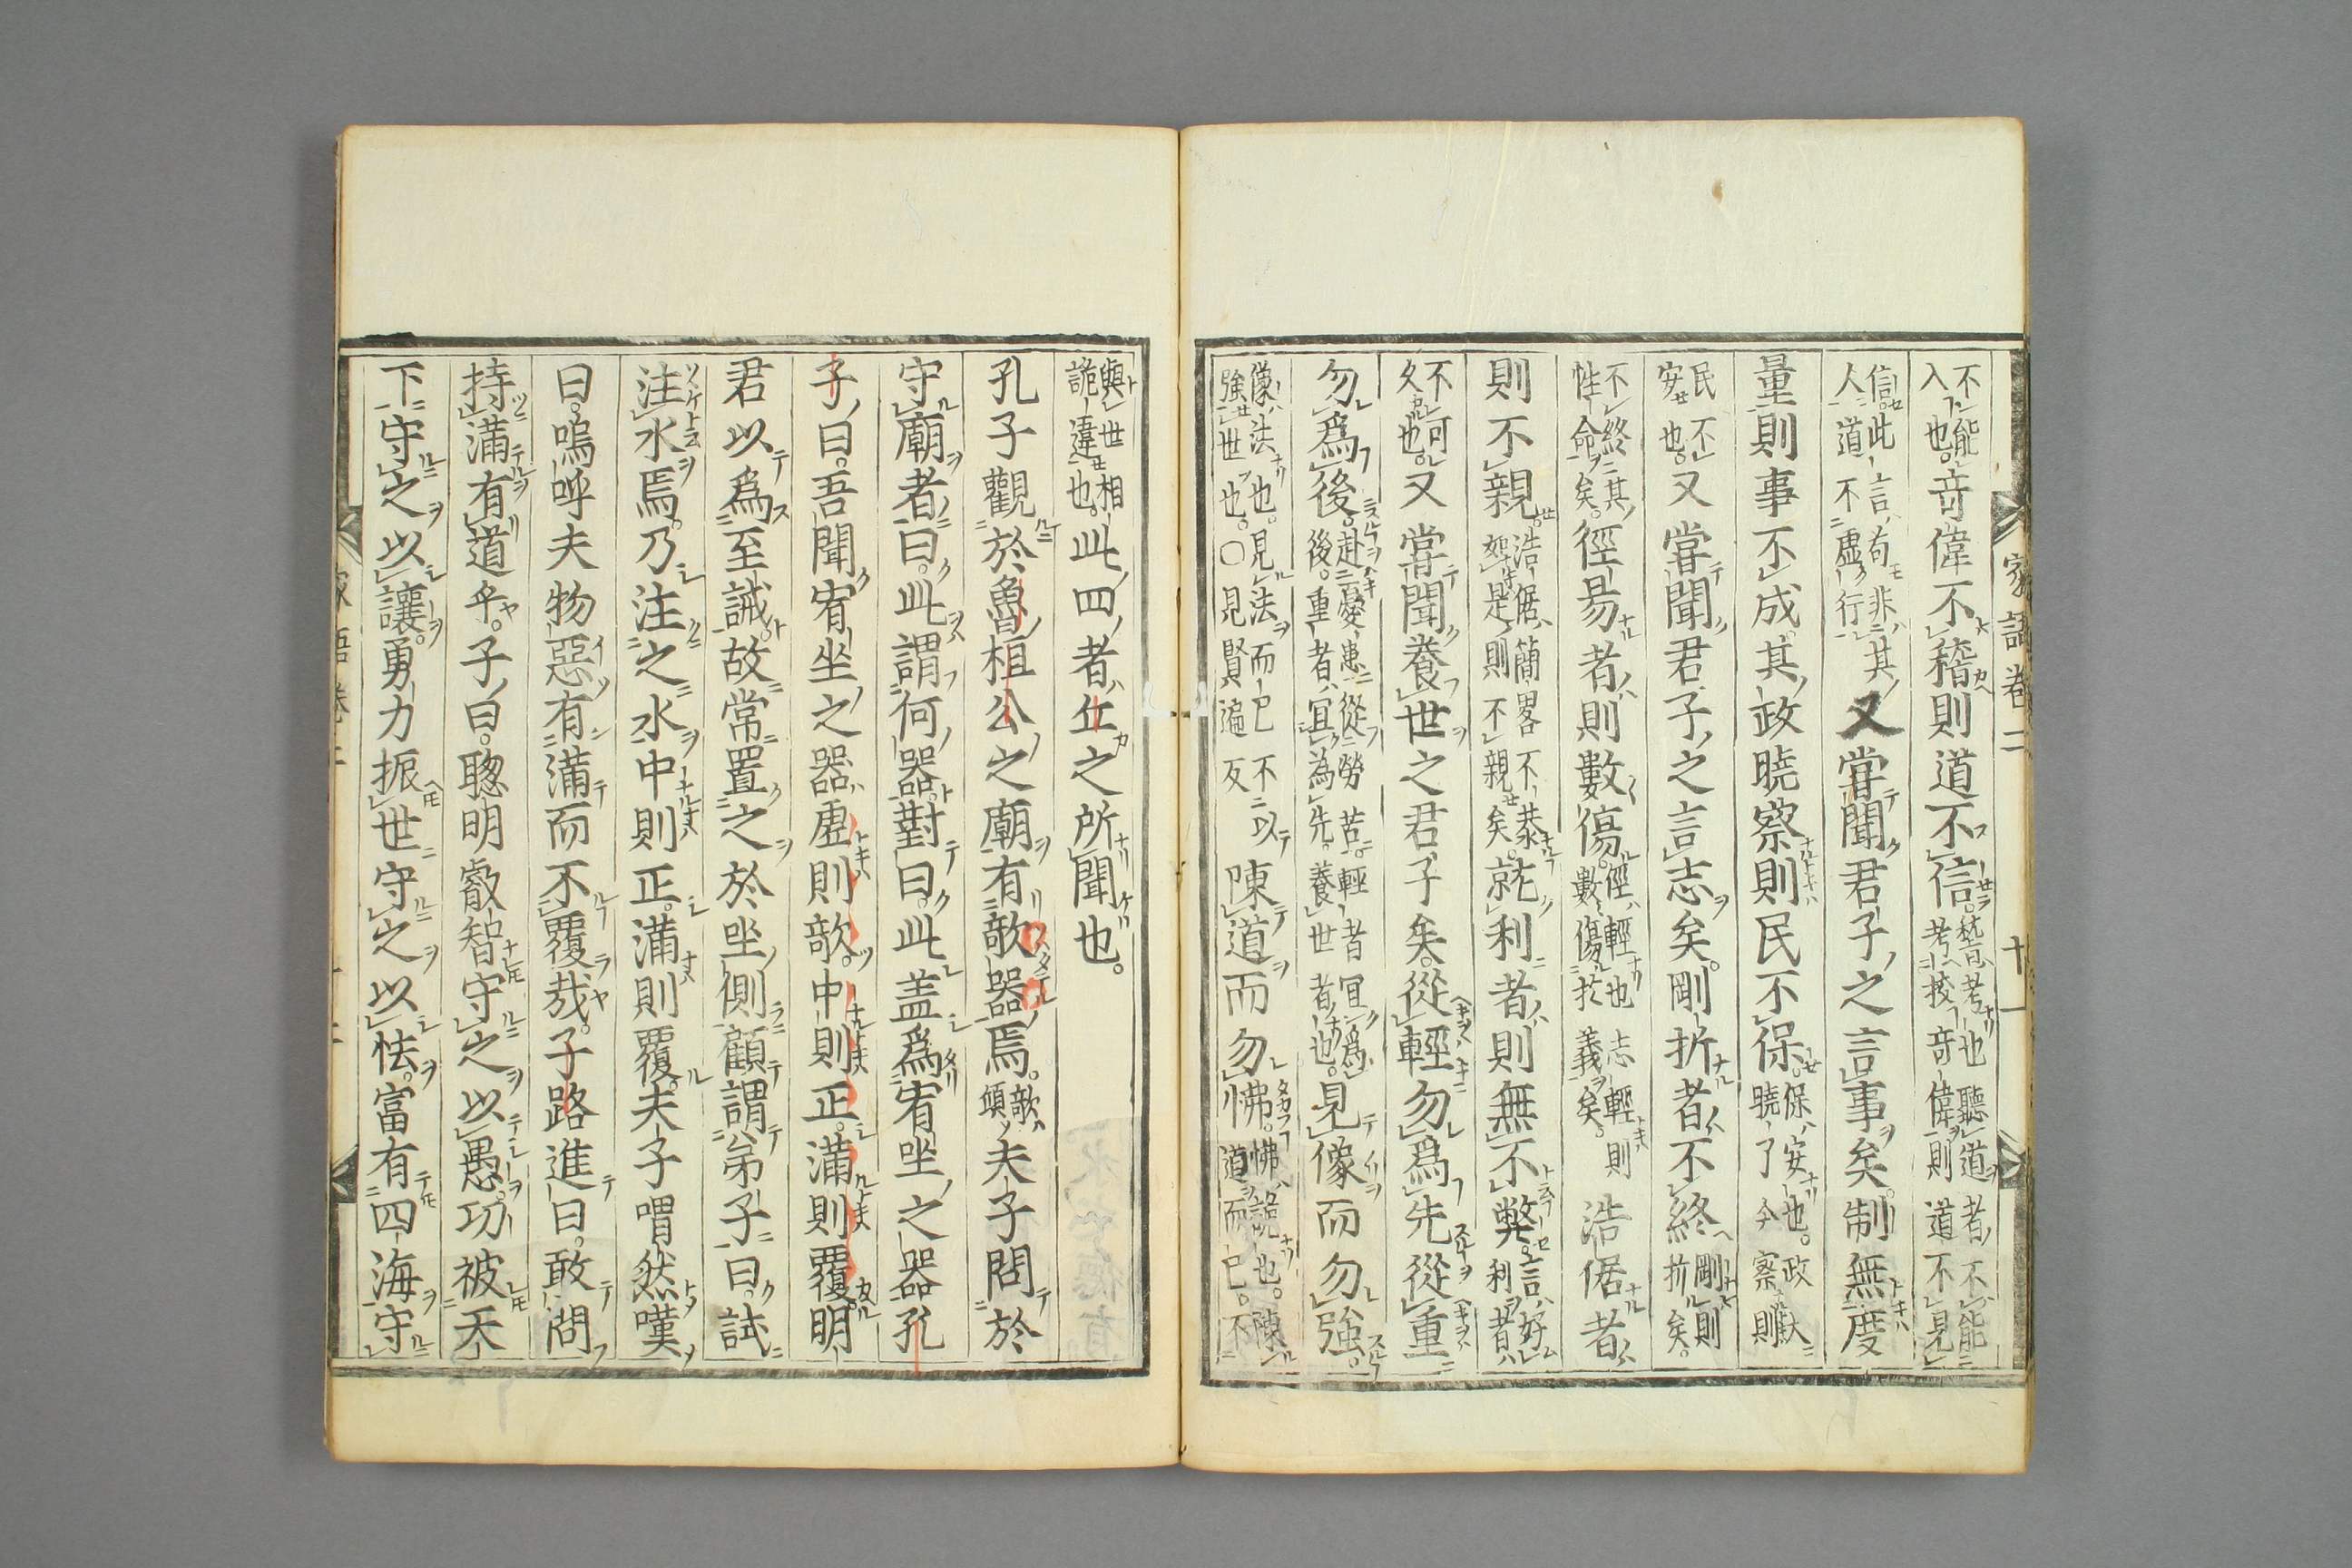 不能入也。竒偉不稽則道不信。嵇考也聽道者不能考挍竒偉則道不見
信此言苟非其人道不虚行又甞聞君子之言事矣制無度
量則事不成其政曉察則民不保。保安也。政大曉了分察則
民不安也。又甞聞君子之言志矣。剛折者不終剛則折矣。
不終其性命矣。徑昜者則數傷。徑輕也志輕則數傷扵義矣。浩倨者
則不親。浩倨簡畧不恭如是則不親矣。就利者則無不弊。言好利者
不可久也。又甞聞養世之君子矣。從輕勿爲先從重
勿爲後。赴憂患從勞苦輕者冝爲後。重者冝為先。養世者也。見像而勿強。
像法也。見法而已強世也。○見賢遍反不以陳道而勿怫。怫詭也。陳道而已。不
與世相詭違也。此四者丘之所聞也。
孔子觀於魯桓公之廟有欹器焉。欹傾夫子問於
守廟者曰。此謂何器對曰。此盖爲宥坐之器孔
子曰。吾聞宥坐之器虚則欹。中則正。滿則覆。明
君以爲至誡。故常置之於坐側顧謂弟子曰試
注水焉。乃注之水中則正。滿則覆。夫子喟然嘆
曰。嗚呼夫物惡有滿而不覆哉。子路進曰。敢問
持滿有道乎。子曰。聦明叡智守之以愚。功被天
下守之以讓。勇力振世守之以怯。富有四海守
家語卷二
十一